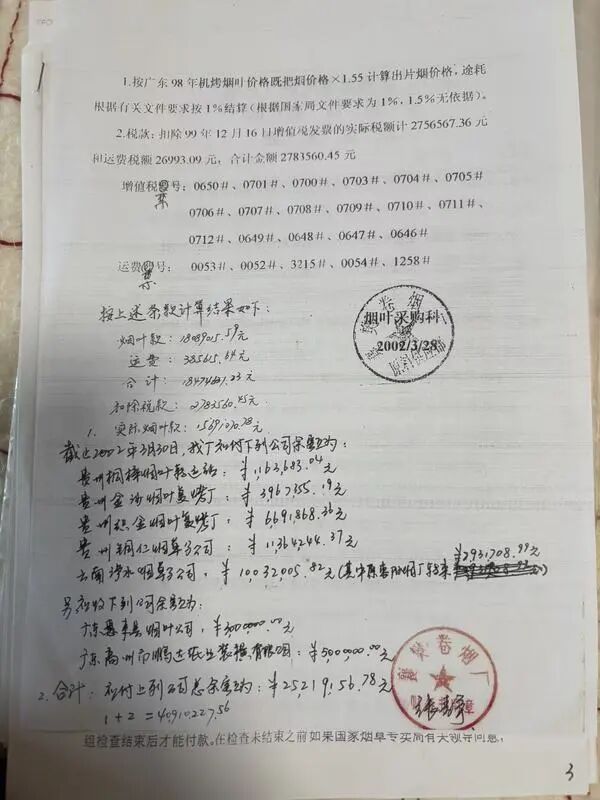 1.按广东 98 年机烤烟叶价格既把烟价格×1.55 计算出片烟价格，途耗
根据有关文件要求按 1%结算（根据国家局文件要求为 1%，1.5%无依据）。
2.税款：扣除 99 年 12 月 16 日增值税发票的实际税额计 2756567.36 元
和运费税额 26993.09 元，合计金额 2783560.45 元
增值税票号： 0650#、0701#、0700#、0703#、0704#、0705#
0706#、0707#、0708#、0709#、0710#、0711#、
0712#、0649#、0648#、0647#、0646#
运费票号： 0053#、0052#、3215#、0054#、1258#
按上述条款计算结果如下：
烟叶款：
运费：385615.64元
合计：
扣除税款：2783560.45元
1. 实际烟叶款：
烟叶采购科
2002/3/28
截止2002年3月30日，我厂应付下列公司余额为：
贵州桐梓烟叶转运站：￥1,163,683.04元
贵州金沙烟叶复烤厂：￥3,967,355.19元
贵州织金烟叶复烤厂：￥6,691,868.36元
贵州铜仁烟草分公司：￥11,364,244.37元
￥2,931,708.99元
云南泸水烟草分公司：￥10,032,005.82元
另应收下列公司余额为：
广东惠来县烟叶公司：￥3000,000.00元
￥5,000,000.00元
2. 合计：应付上列公司总余额为：￥25,219,156.78元
1+2=40910227.56
组检查结束后才能付款。在检查未结束之前如果国家烟草专卖局有关领导问息，
3